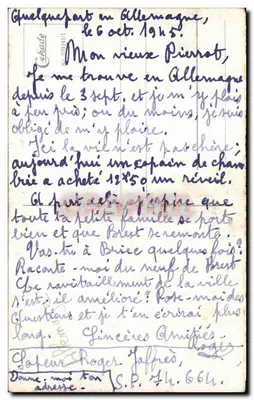 Quelquepart en Allemagne,
le 6 oct. 1945.
Mon vieux Pierrot,
Je me trouve en Allemagne
depuis le 3 sept. et je m'y plais
à peu près; ou du moins, je suis
obligé de m'y plaire.
Ici la vie n'est pas chère;
aujourd'hui un copain de cham
brée a acheté 12,50 un réveil.
A part cela j'espère que
toute ta petite famille se porte
bien et que Brest se remonte.
Vas-tu à Briec quelques fois?
Raconte-moi du neuf de Brest
Le ravitaillement de la ville
s'est il amélioré? Pose-moi des
questions et je t'en écrirai plus
long. Sincères Amitiés.
Roger
Sapeur Roger Jaffrès,
Donne-moi ton
adresse.
S.P. 74.664.